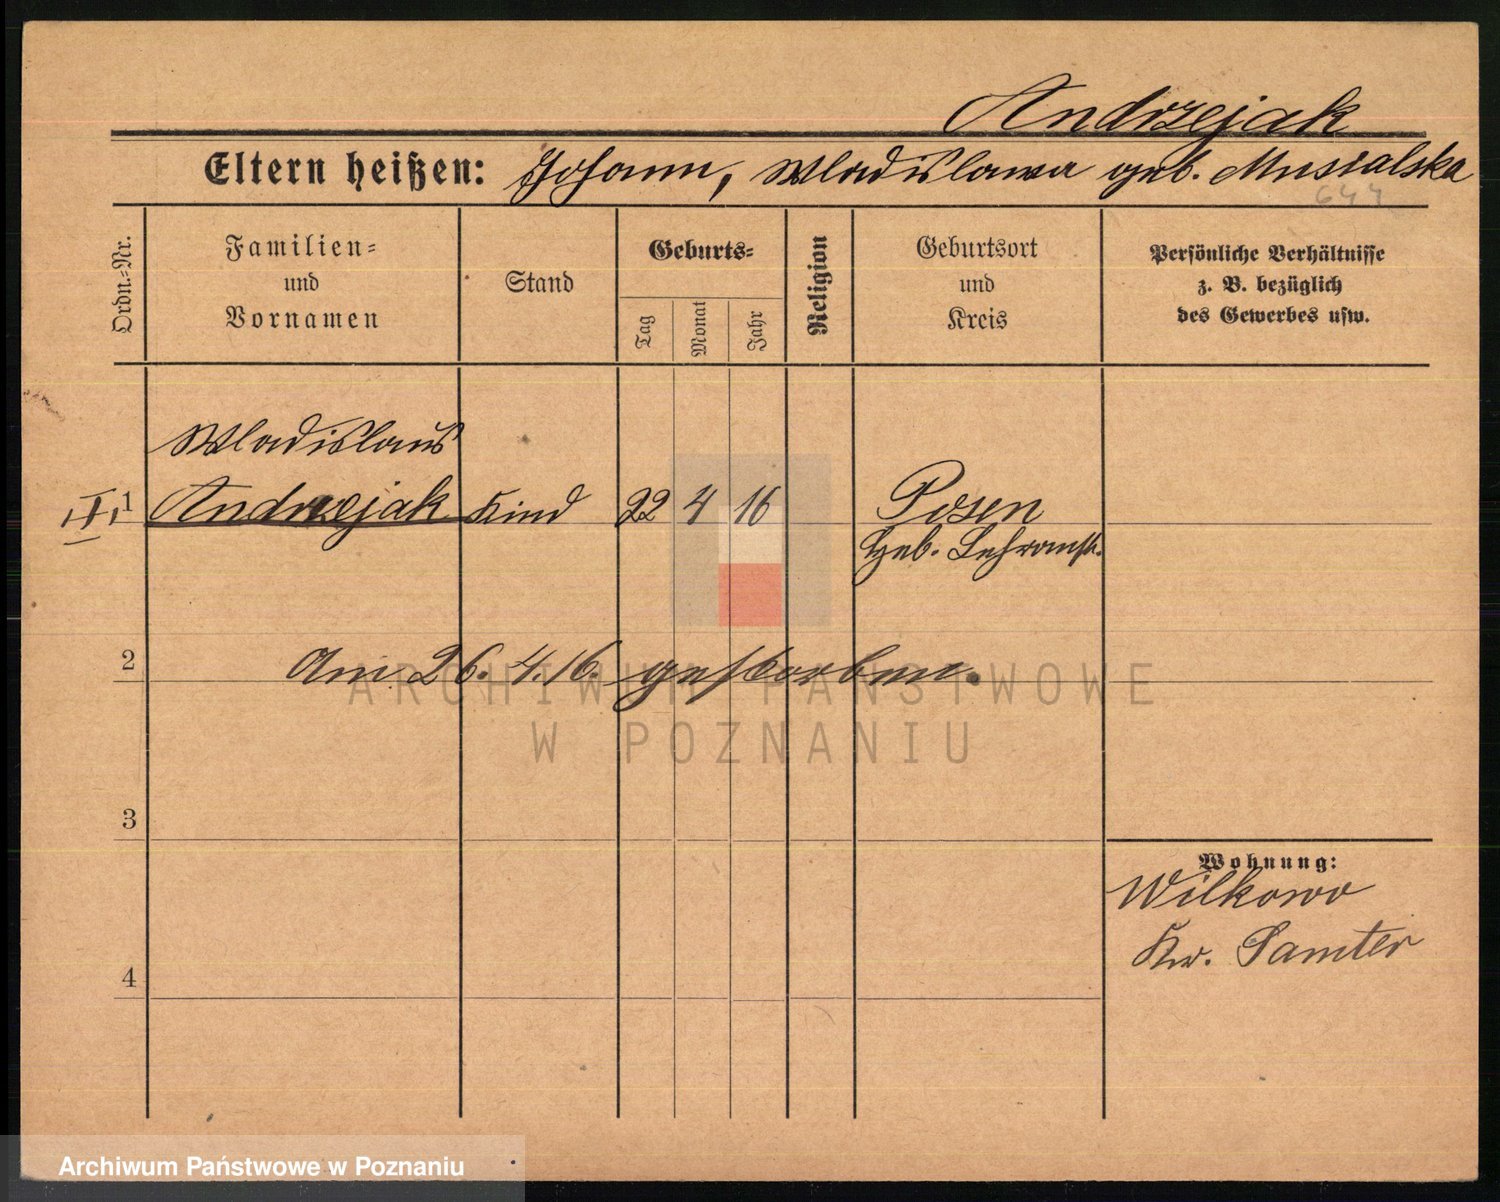 Andrzejak
Eltern heißen: Johann, Wladislawa geb. Musialska
644
Ordn.-Nr.
Familien-
und
Vornamen
Stand
Geburts-
Tag
Monat
Jahr
Religion
Geburtsort
und
Kreis
Persönliche Verhältnisse
z. B. bezüglich
des Gewerbes usw.
Wladislaus
1 Andrzejak Kind 22 4 16 Posen
Heb.
2 Am 26.4.16. gestorben.
ARCHIWUM PAŃSTWOWE
W POZNANIU
3
Wohnung:
Wilkowo
Kr. Samter
4
Archiwum Państwowe w Poznaniu